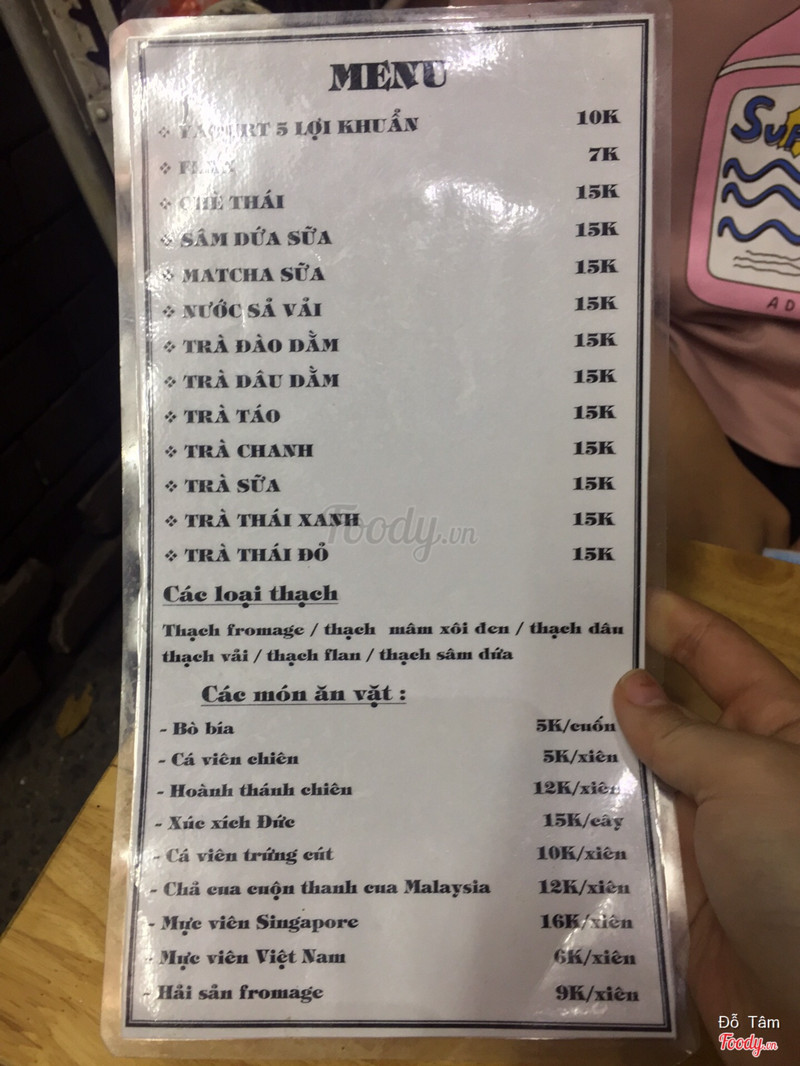 MENU
❖ YAOURT 5 LỢI KHUẨN 10K
❖ FLAN 7K
❖ CHÈ THÁI 15K
❖ SÂM DỨA SỮA 15K
❖ MATCHA SỮA 15K
❖ NƯỚC SẢ VẢI 15K
❖ TRÀ ĐÀO DẰM 15K
❖ TRÀ DÂU DẰM 15K
❖ TRÀ TÁO 15K
❖ TRÀ CHANH 15K
❖ TRÀ SỮA 15K
❖ TRÀ THÁI XANH 15K
❖ TRÀ THÁI ĐỎ 15K
Foody.vn
Các loại thạch
Thạch fromage / thạch mâm xôi đen / thạch dâu
thạch vải / thạch flan / thạch sâm dứa
Các món ăn vặt :
- Bò bía 5K/cuốn
- Cá viên chiên 5K/xiên
- Hoành thánh chiên 12K/xiên
- Xúc xích Đức 15K/cây
- Cá viên trứng cút 10K/xiên
- Chả cua cuộn thanh cua Malaysia 12K/xiên
- Mực viên Singapore 16K/xiên
- Mực viên Việt Nam 6K/xiên
- Hải sản fromage 9K/xiên
Đỗ Tâm
Foody.vn